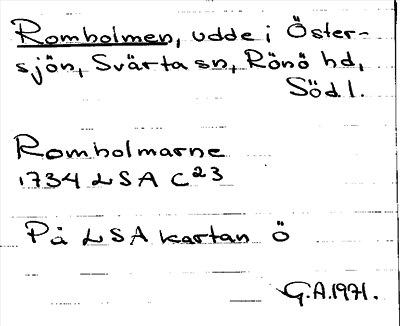 Romholmen, udde i Öster-
sjön, Svärta sn, Rönö hd,
Söd.l.
Romholmarne
1734 LSA C23
På LSA kartan Ö
G.A.1971.